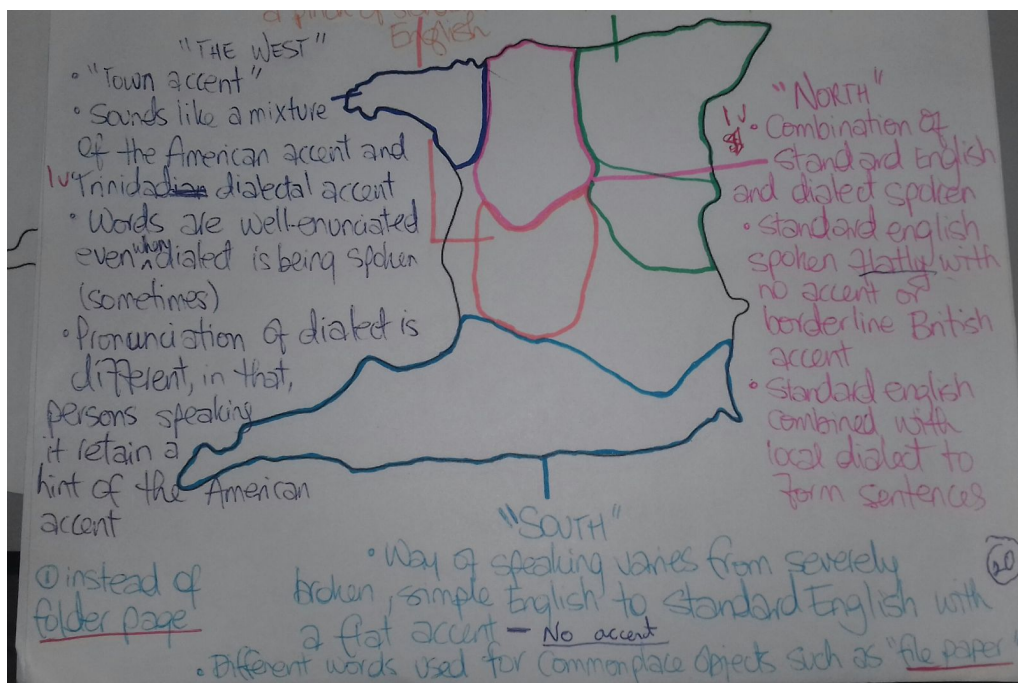 English
"THE WEST"
• "Town accent"
• Sounds like a mixture
of the American accent and
Trinidadian dialectal accent
• Words are well-enunciated
even when dialect is being spoken
(sometimes)
• Pronunciation of dialect is
different, in that,
persons speaking
it retain a
hint of the American
accent
"NORTH"
• Combination of
standard English
and dialect spoken
• standard english
spoken flatly with
no accent or
borderline British
accent
• Standard english
combined with
local dialect to
form sentences
"SOUTH"
• Way of speaking varies from severely
broken, simple English to standard English with
a flat accent – No accent
• Different words used for commonplace objects such as "file paper"
① instead of
folder page
20